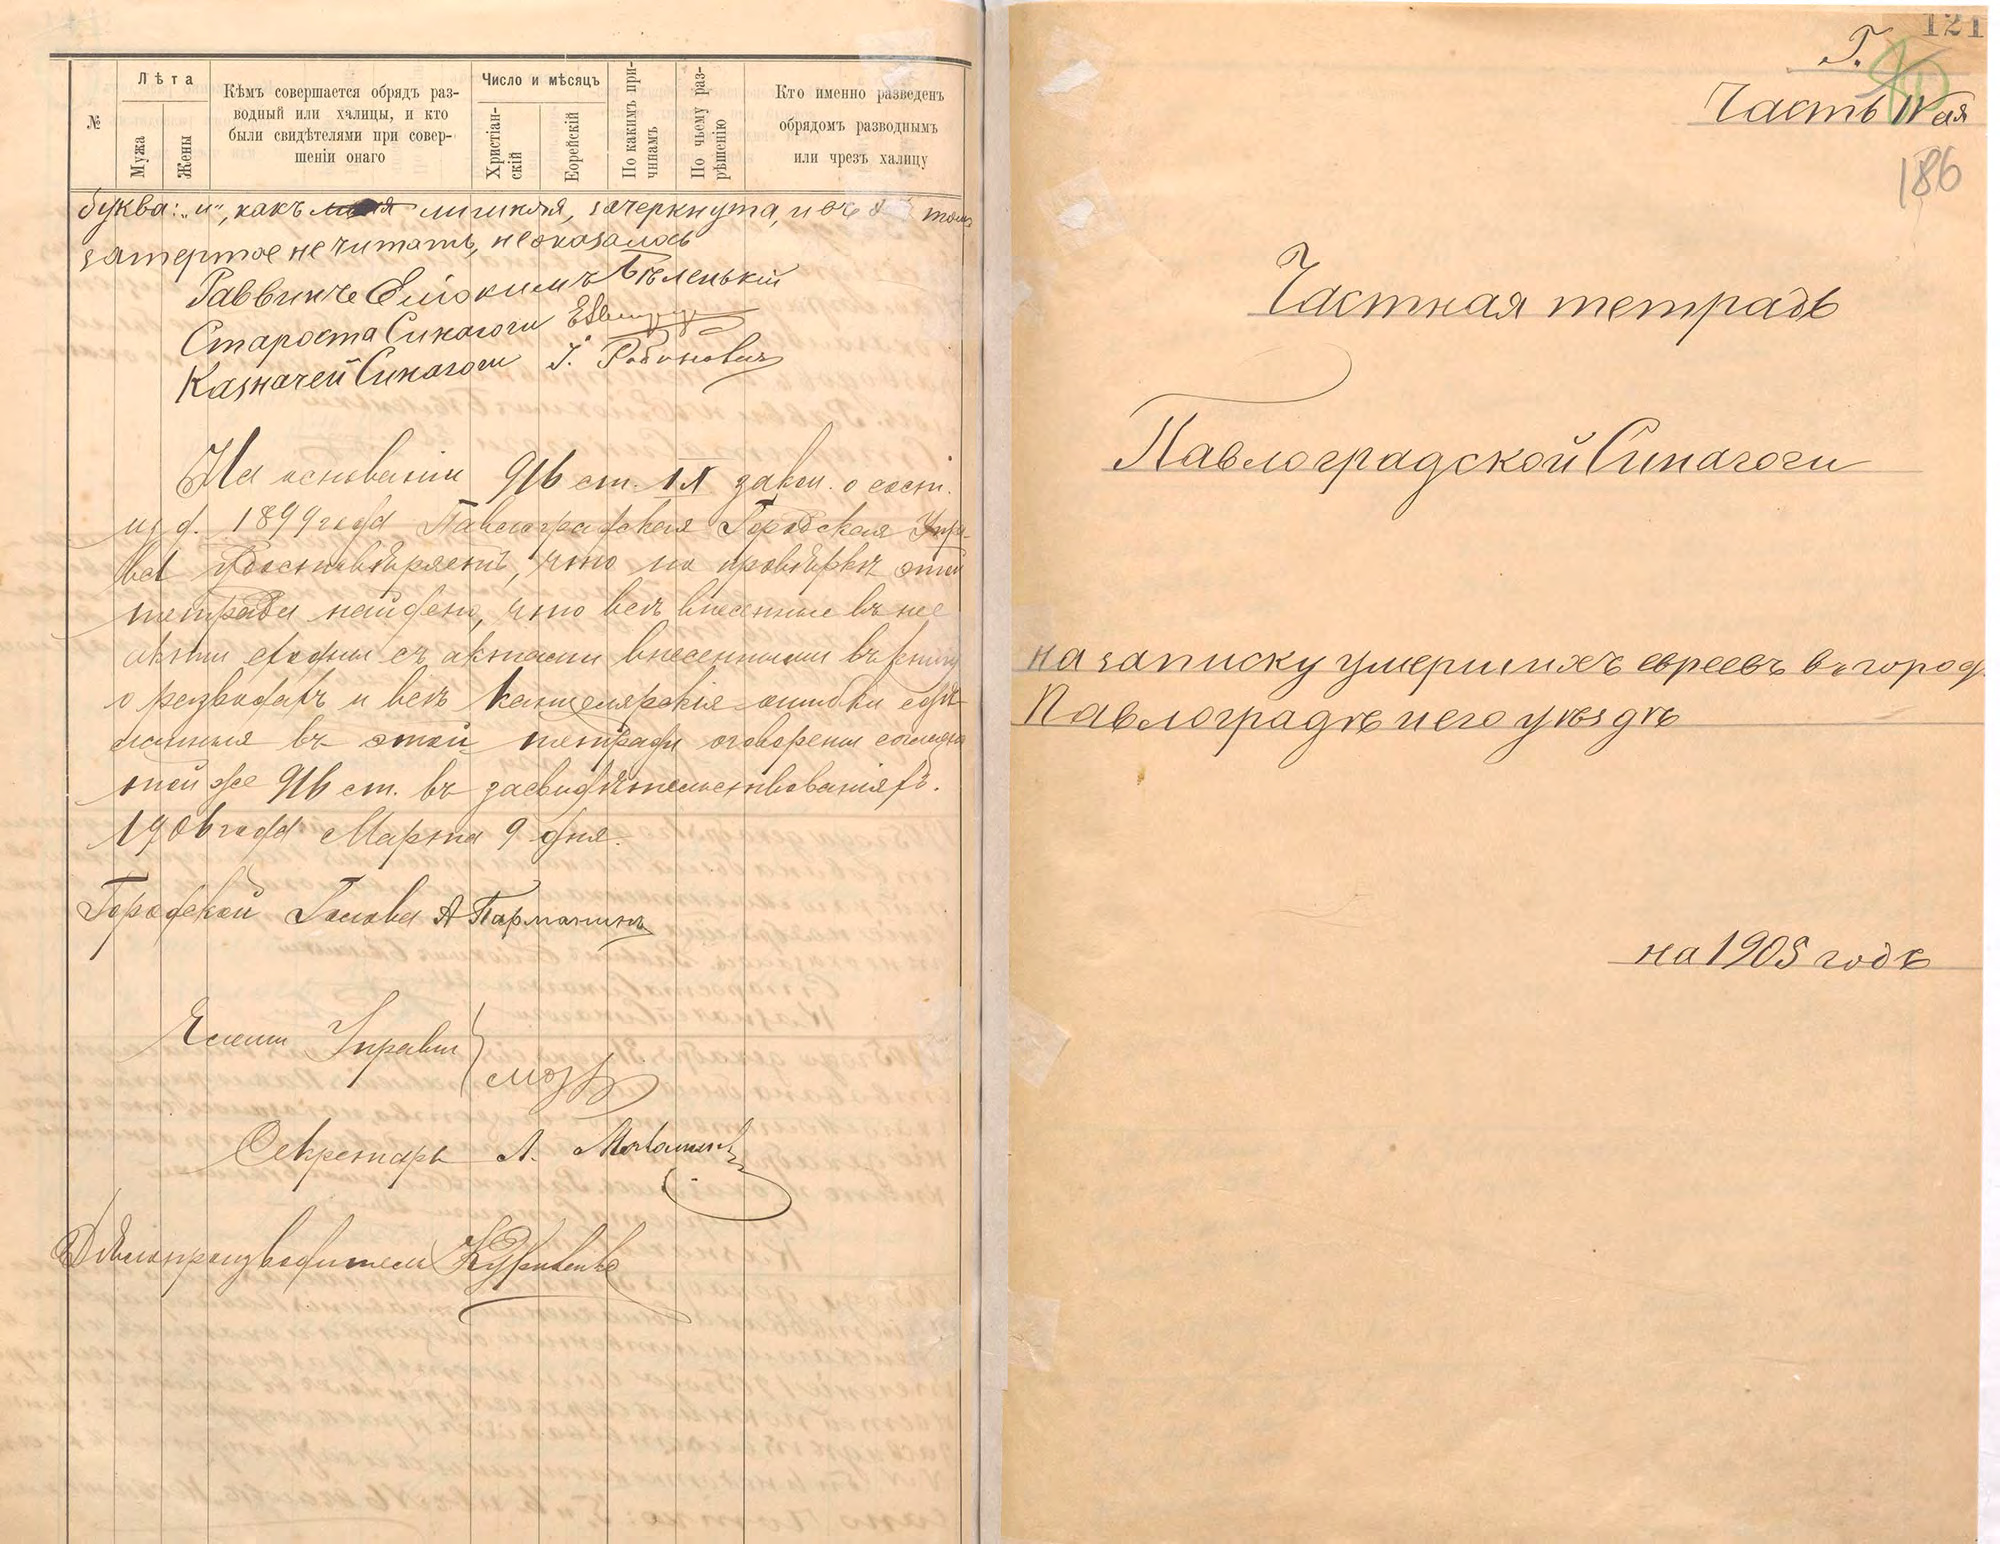 №
Лѣта
Мужа
Жены
Кѣмъ совершается обрядъ раз-
водный или халицы, и кто
были свидѣтелями при совер-
шеніи онаго
Число и мѣсяцъ
Христіан-
скій
Еврейскій
По какимъ при-
чинамъ
По чьему раз-
рѣшенію
Кто именно разведенъ
обрядомъ разводнымъ
или чрезъ халицу
буква: „и“, какъ лишняя, зачеркнута,
затертое не читать, не оказалось
Раввинъ Еліокимъ Бѣленькій
Староста Синагоги
Казначей Синагоги І. Рабиновичъ
На основаніи 916 ст. IX закон. о сост.
изд. 1899 года Павлоградская Городская Упра-
ва удостовѣряетъ, что по провѣркѣ этой
тетради найдено, что всѣ внесенные въ нее
акты сходны съ актами внесенными въ книгу
о разводахъ и всѣ канцелярскія ошибки сдѣ-
ланныя въ этой тетради оговорены согласно
той же 916 ст. въ засвидѣтельствованіяхъ.
1906 года Марта 9 дня.
Городской Голова А
Члены Управы
Секретарь А.
Дѣлопроизводитель
121
Г.
Часть IV ая
186
Частная тетрадь
Павлоградской Синагоги
на записку умершихъ евреевъ въ город.
Павлоградѣ и его уѣздѣ
на 1905 годъ